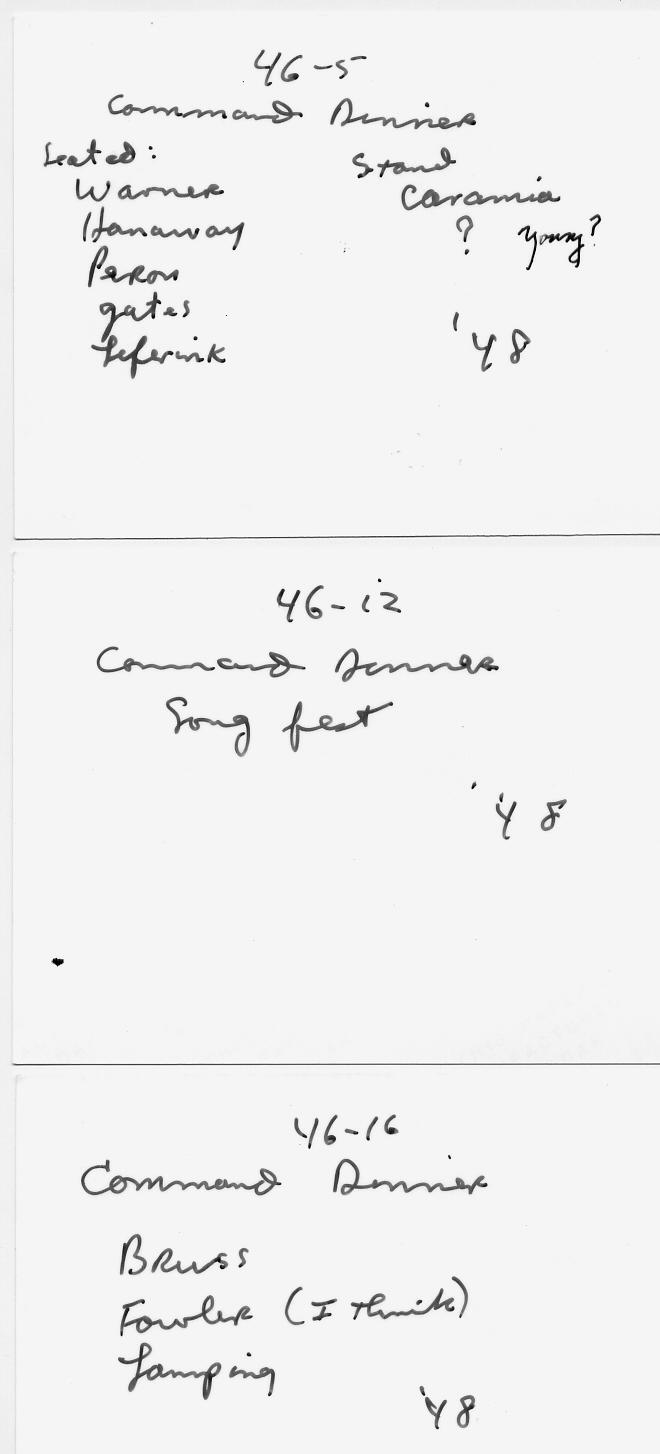 46-5
Command Dinner
Seated: Stand
Warner Caramia
Hanaway ? Young?
Peron
gates
'48
46-12
Command Dinner
Song fest
'48
46-16
Command Dinner
Bruss
Fowler (I think)
Lamping
'48